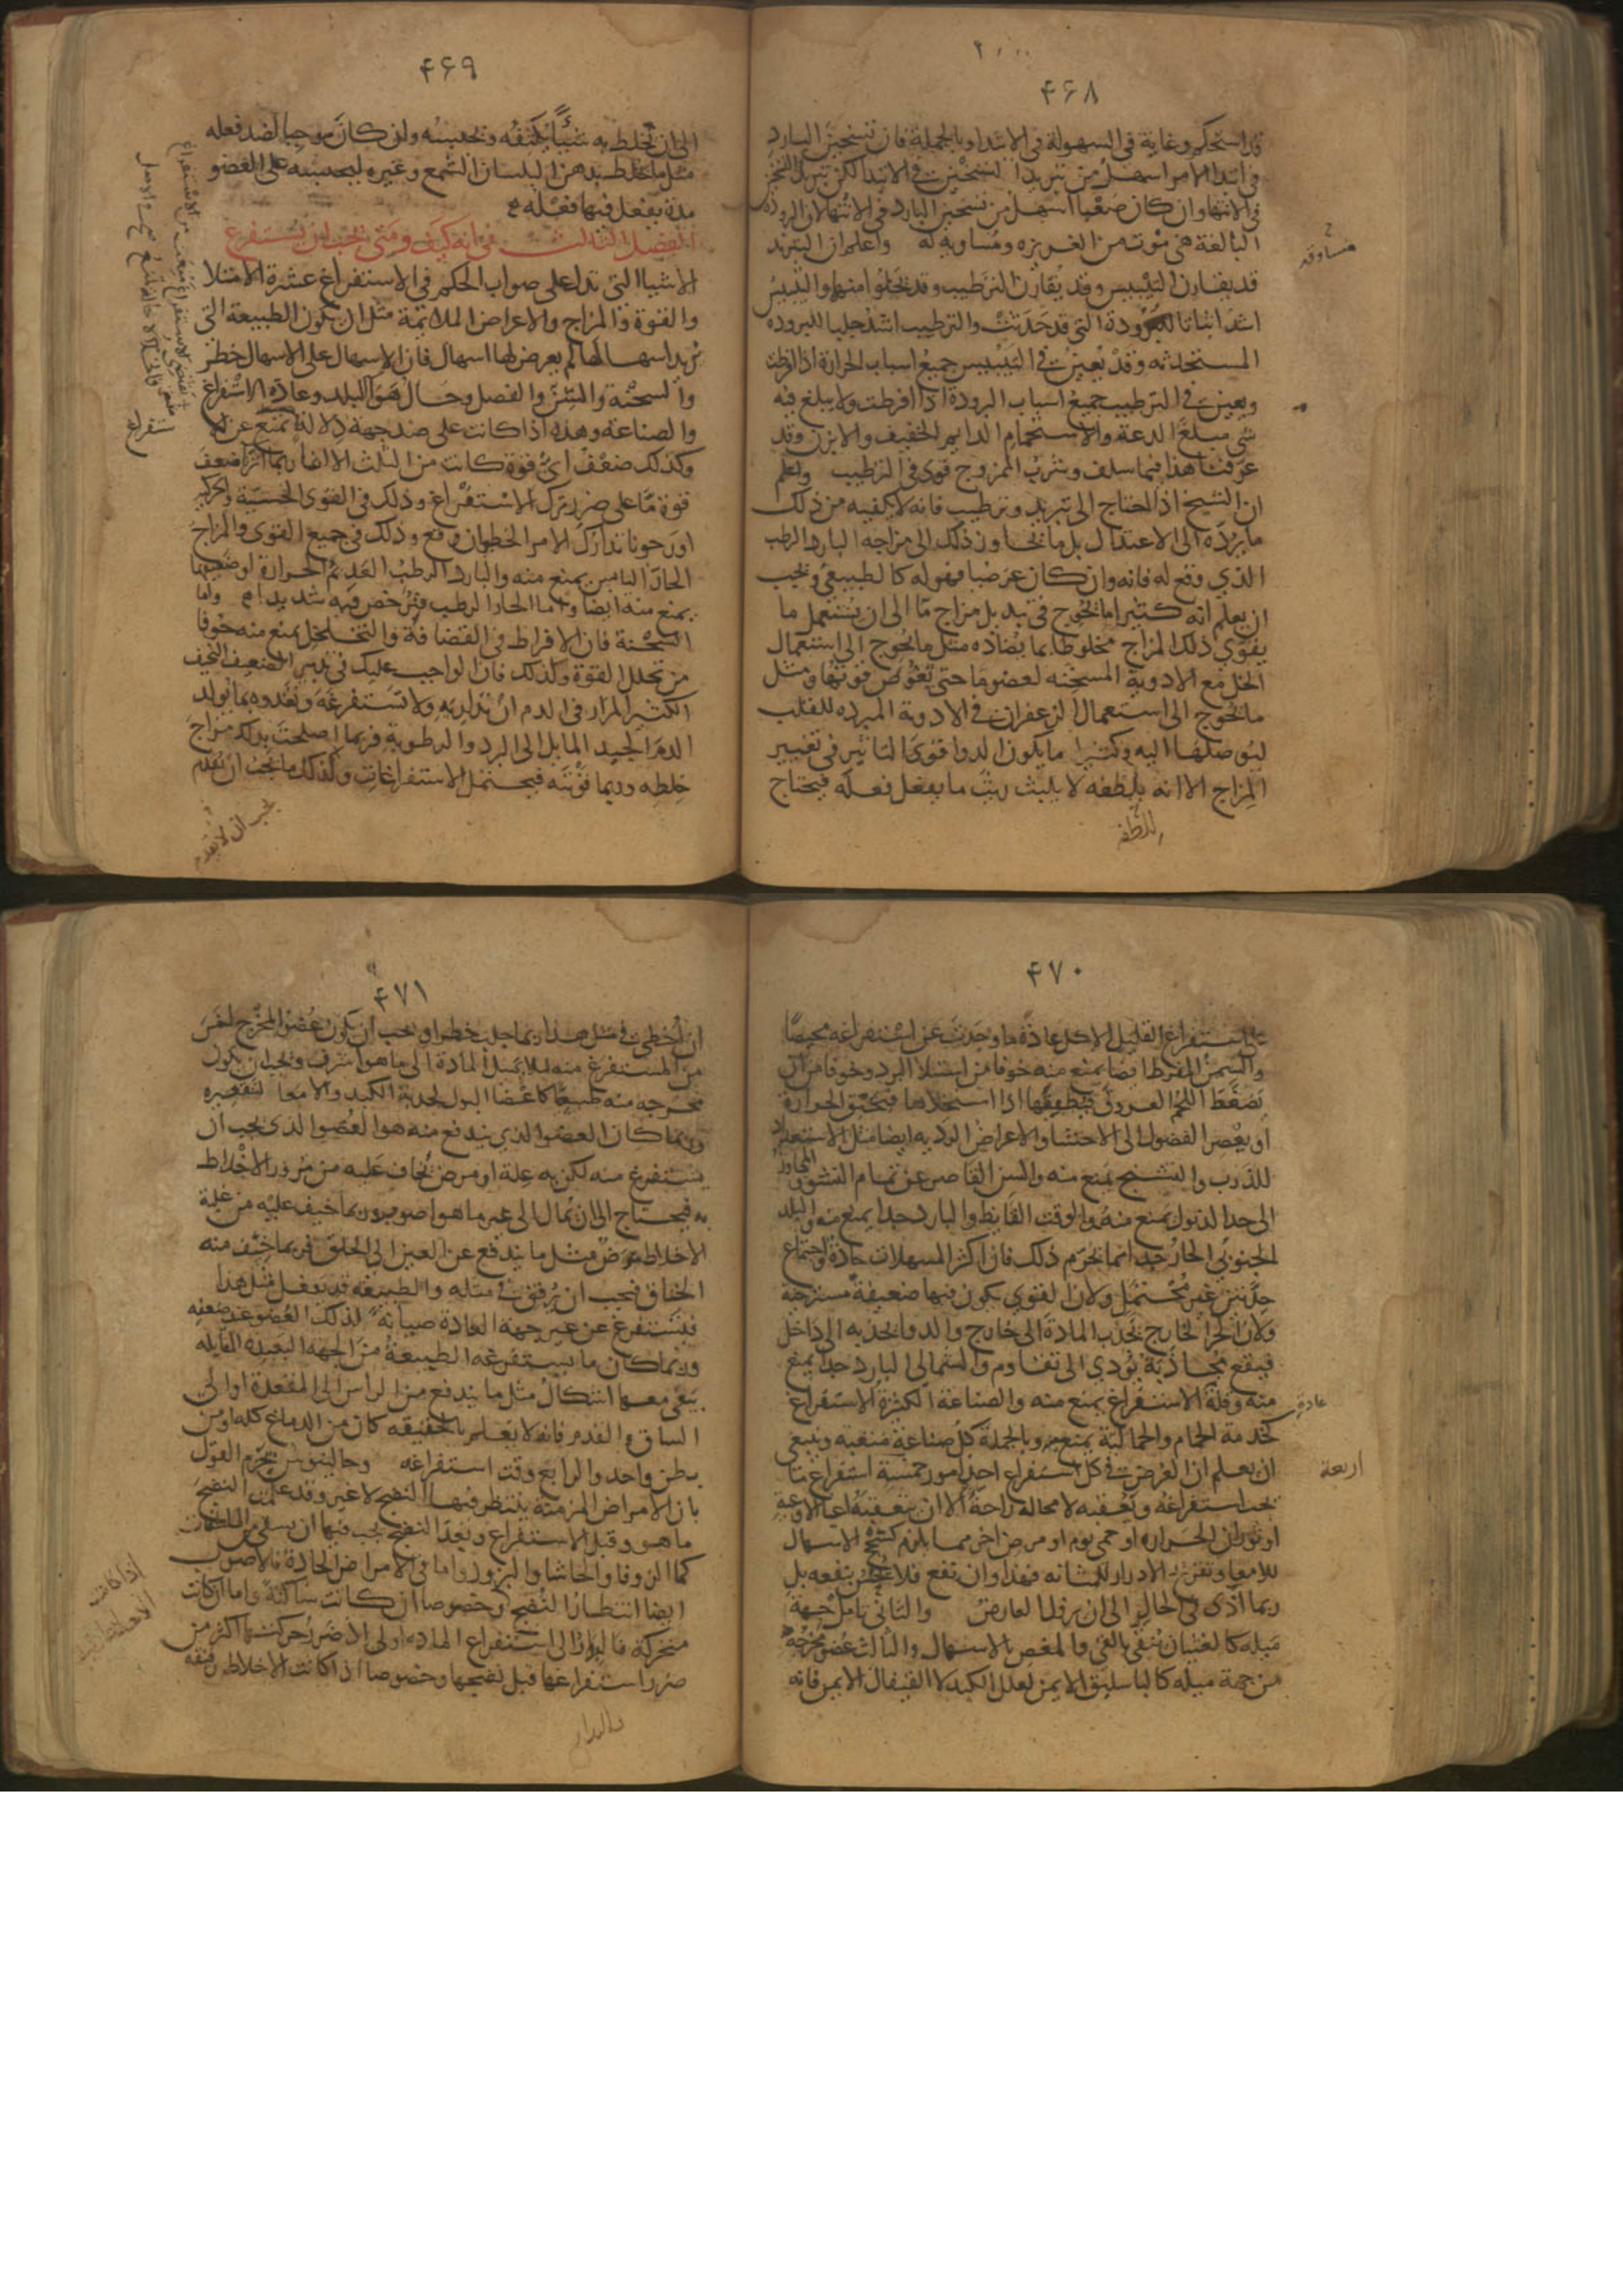 ۴۶۸
قد استحكم وغاية في السهولة في الابتداء وبالجملة فان تسخين البارد
في ابتدا الامر اسهل من تبريد التسخين في الابتدا لكن تبريد
في الانتها وان كان صعبا اسهل من تسخين البارد في الانتها لان البرودة
البالغة هي موت من الغريزه ومساويه له واعلم ان التبريد
مساوقه
قد يقارن التيبيس وقد يقارن الترطيب وقد يخلوا منهما والتيبيس
اشد اثباتا للبرودة التي قد حدثت والترطيب اشد جلبا للبروده
المستحدثه وقد يعين في التيبيس جميع اسباب الحرارة اذا افرطت
ويعين في الترطيب جميع اسباب البرودة اذا افرطت ولا يبلغ فيه
شي مبلغ الدعة والاستحمام الدايم الخفيف والابزن وقد
عرفت هذا فيما سلف وشرب الممزوج قوى في الترطيب واعلم
ان الشيخ اذا احتاج الى تبريد وترطيب فانه لا يكفيه من ذلك
ما يرده الى الاعتدال بل ما يجاوز ذلك الى مزاجه البارد الرطب
الذي وقع له فانه وان كان عرضيا فهو له كالطبيعي ويجب
ان يعلم انه كثيرا ما يحوج في تبديل مزاج ما الى ان يستعمل ما
يقوي ذلك المزاج مخلوطا بما يضاده مثل ما يحوج الى استعمال
الخل مع الادوية المسخنه لعضو ما حتى تغوص قوتها ومثل
ما يحوج الى استعمال الزعفران في الادوية المبرده للقلب
ليوصلها اليه وكثيرا ما يكون الدوا قوي التاثير في تغيير
المزاج الا انه بلطفه لا يلبث ريث ما يفعل فعله فيحتاج
للطفه
۴۶۹
الى ان تخلط به شيئا يكثفه ويحبسه وان كان موجبا لضد فعله
مثل ما يخلط بدهن البلسان الشمع وغيره ليحبسه على العضو
مدة يفعل فيها فعله
الفصل الثالث في انه كيف ومتى يجب ان يستفرغ
الاشيا التي تدل على صواب الحكم في الاستفراغ عشرة الامتلا
والقوة والمزاج والاعراض الملائمة مثل ان يكون الطبيعة التي
تريد اسهالها لم يعرض لها اسهال فان الاسهال على الاسهال خطر
والسحنة والسن والفصل وحال هوا البلد وعادة الاستفراغ
والصناعة وهذه اذا كانت على ضد جهة دلالة تمنع عن
وكذلك ضعف اي قوة كانت من الثلث الا انا ربما اثرنا ضعف
قوة ما على ضرر ترك الاستفراغ وذلك في القوى الحسية والحركية
اورجونا تدارك الامر الخطر ان وقع وذلك في جميع القوى والمزاج
الحار اليابس يمنع منه والبارد الرطب العديم الحرارة او ضعيفها
يمنع منه ايضا واما الحار الرطب فترخص فيه شديدا واما
السحنة فان الافراط في القضافة والتخلخل يمنع منه خوفا
من تحلل القوة وكذلك فان الواجب عليك في تدبير الضعيف النحيف
الكثير المرار في الدم ان تداريه ولا تستفرغه وتغدوه بما يولد
الدم الجيد المايل الى البرد والرطوبة فربما اصلحت بذلك مزاج
خلطه وربما قويته فيحتمل الاستفراغات وكذلك ما يجب ان يقدم
يجب ان لا يقدم
۴۷۰
على استفراغ القليل الاكل عادة ما وجدت عن استفراغه محيصا
والسمن المفرط ايضا يمنع منه خوفا من استيلا البرد وخوفا من ان
تضغط اللحم العروق ويطبقها اذا استخلاها فيختنق الحرارة
او يعصر الفضول الى الاحشا والاعراض الردية ايضا مثل الاستعداد
للذرب والتشنج يمنع منه والسن القاصر عن تمام النشو والمجاوز
الى حد الذبول يمنع منه والوقت القايظ والبارد جدا يمنع منه والبلد
الجنوبي الحار جدا انما يحرم ذلك فان اكثر المسهلات حادة واجتماع
حادين غير محتمل ولان القوي يكون فيها ضعيفة مسترخية
ولان الحر الخارج يجذب المادة الى خارج والدوا يجذبه الى داخل
فيقع مجاذبة تودي الى تقاوم والشمالي البارد جدا يمنع
منه وقلة الاستفراغ يمنع منه والصناعة الكثيرة الاستفراغ
عادة
كخدمة الحمام والحمالية يمنع منه وبالجملة كل صناعة متعبه وينبغي
ان يعلم ان الغرض في كل استفراغ احد امور خمسة استفراغ ما
اربعة
يجب استفراغه وتعقبه لا محالة راحة الا ان يتعقبه اعيا الاوعية
او ثوران الحراره او حمى يوم او مرض اخر مما يلزم كسحج الاسهال
للامعا وتقريح الادرار للمثانه فهذا وان نفع فلا يحس بنفعه بل
ربما آذى في الحال الى ان يزول العارض والثاني تامل جهة
ميله كالغثيان ينقى بالقي والمغص بالاسهال والثالث عضو مخرجه
من جهة ميله كالباسليق الايمن لعلل الكبد لا القيفال الايمن فانه
۴۷۱
ان اخطي في مثل هذا ربما جلب خطرا ويجب ان يكون عضو المخرج اخس
من المستفرغ منه ليلا يميل المادة الى ما هو اشرف ويجب ان يكون
مخرجه منه طبيعيا كاعضا البول لحدبة الكبد والامعا لتقعيره
وربما كان العضو الذي يندفع منه هو العضو الذي يجب ان
يستفرغ منه لكن به علة او مرض يخاف عليه من مرور الاخلاط
به فيحتاج الى ان يمال الى غير ما هو اصوب وربما خيف عليه من غلبة
الاخلاط مرض مثل ما يندفع عن العين الى الحلق فربما خيف منه
الخناق فيجب ان يرفق في مثله والطبيعة قد تفعل مثل هذا
فيستفرغ عن غير جهة العادة صيانة لذلك العضو عن ضعفه
وربما كان ما يستفرغه الطبيعة من الجهة البعيدة المقابله
يبقى معها اشكال مثل ما يندفع من الراس الى المقعدة او الى
الساق والقدم فانه لا يعلم بالحقيقه كان من الدماغ كله او من
بطن واحد والرابع وقت استفراغه وجالينوس يجزم القول
بان الامراض المزمنة ينتظر فيها النضج لا غير وقد علمت النضج
ما هو وقبل الاستفراغ وبعد النضج يجب فيها ان يسقى من الملطفات
كما الزوفا والحاشا والبزور واما في الامراض الحادة فالاصوب
ايضا انتظار النضج وخصوصا ان كانت ساكنة واما ان كانت
متحركة فالبدار الى استفراغ المادة اولى اذ ضرر حركتها اكثر من
ضرر استفراغها قبل نضجها وخصوصا اذا كانت الاخلاط رقيقة
اذا كانت
فالبدار